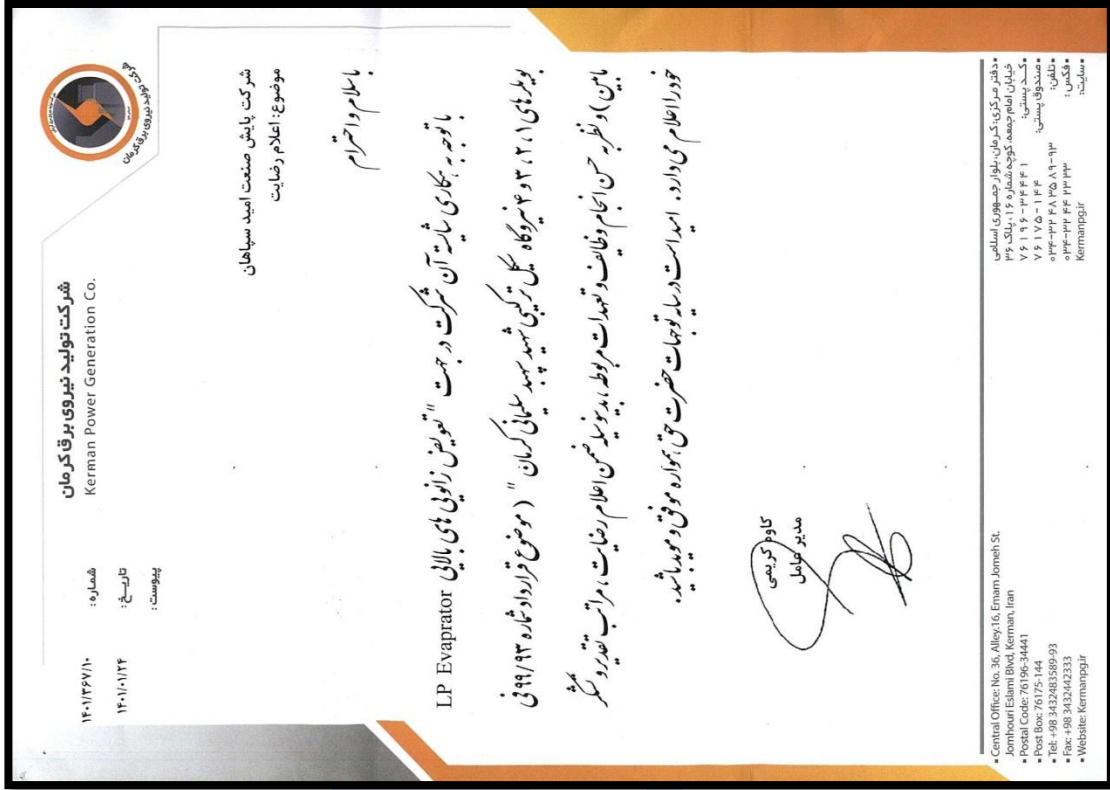 شرکت تولید نیروی برق کرمان
شرکت تولید نیروی برق کرمان
Kerman Power Generation Co.
شماره: ۱۴۰۱/۲۶۷/۱۰
تاریـخ: ۱۴۰۱/۰۱/۲۴
پیوست:
شرکت پایش صنعت امید سپاهان
موضوع: اعلام رضایت
با سلام و احترام
با توجه به همکاری شایسته آن شرکت در جهت "تعویض زانویی های بالایی LP Evaprator
بویلرهای ۱، ۲، ۳ و ۴ نیروگاه سیکل ترکیبی شهید سپهبد سلیمانی کرمان" (موضوع قرارداد شماره ۹۹/۹۳ فی
مابین) و نظر به حسن انجام وظائف و تعهدات مربوطه، بدینوسیله ضمن اعلام رضایت، مراتب تقدیر و تشکر
خود را اعلام می دارد. امید است در سایه توجهات حضرت حق، همواره موفق و موید باشید.
کاوه کریمی
مدیر عامل
▪ دفتر مرکزی: کرمان، بلوار جمهوری اسلامی
خیابان امام جمعه، کوچه شماره ۱۶، پلاک ۳۶
▪ کـد پستی: ۷۶۱۹۶-۳۴۴۴۱
▪ صندوق پستی: ۷۶۱۷۵-۱۴۴
▪ تلفن: ۰۳۴-۳۲۴۸۳۵۸۹-۹۳
▪ فکس: ۰۳۴-۳۲۴۴۲۳۳۳
▪ سایت: Kermanpg.ir
▪ Central Office: No. 36, Alley.16, Emam Jomeh St.
Jomhouri Eslami Blvd, Kerman, Iran
▪ Postal Code: 76196-34441
▪ Post Box: 76175-144
▪ Tel: +98 3432483589-93
▪ Fax: +98 3432442333
▪ Website: Kermanpg.ir